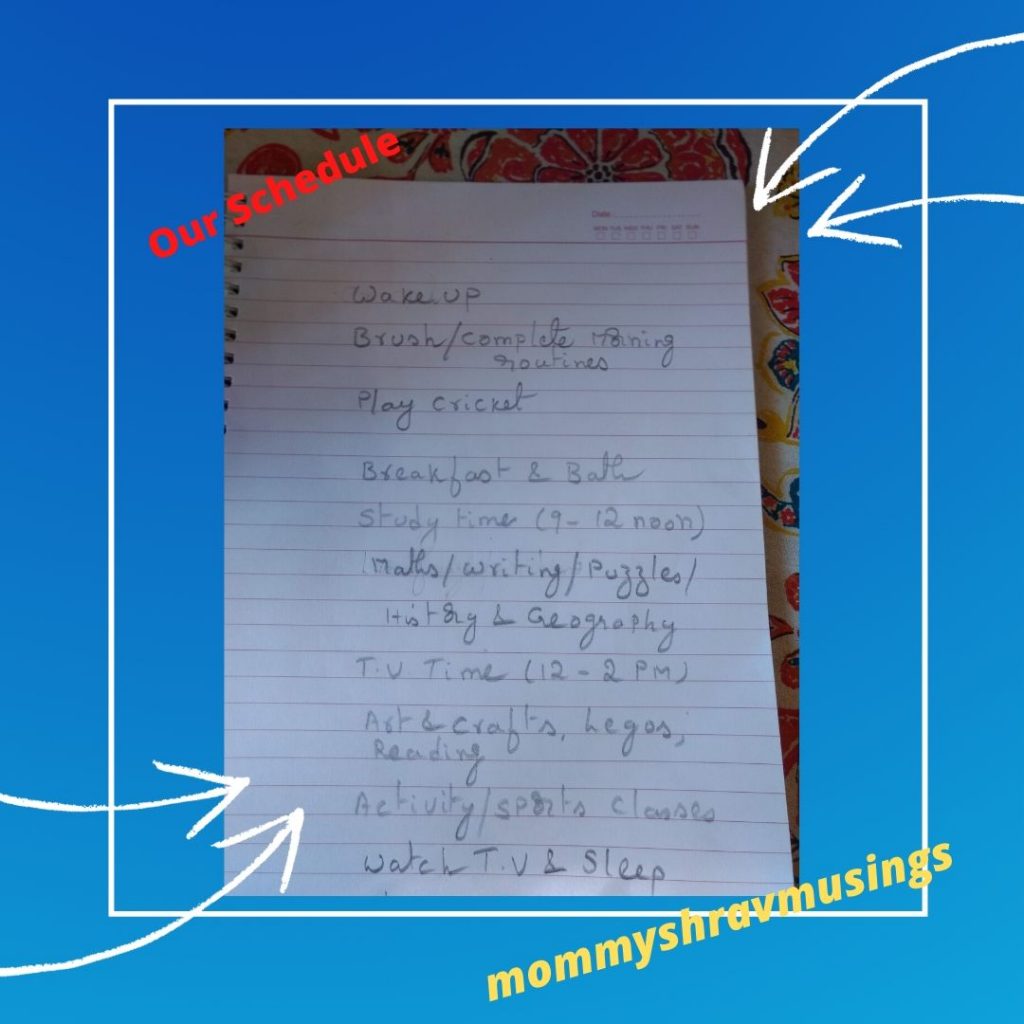 Our Schedule
Date
MON TUE WED THU FRI SAT SUN
Wake up
Brush/complete Morning
routines
Play cricket
Breakfast & Bath
Study time (9-12 noon)
Maths/writing/Puzzles/
History & Geography
T.V Time (12-2 PM)
Art & crafts, Legos,
Reading
Activity/sports classes
Watch T.V & Sleep
mommyshravmusings